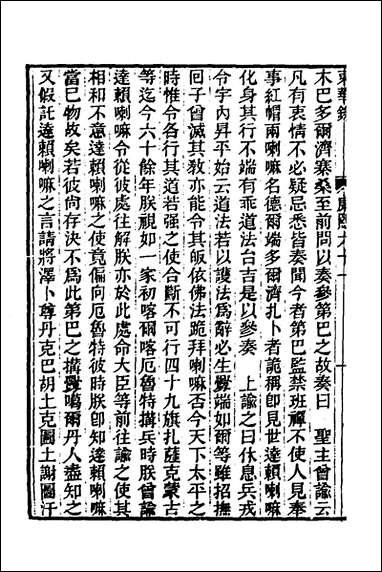 東華錄 康熙六十一
木巴多爾濟寨桑至前問以奏參第巴之故奏曰　聖主曾諭云
凡有衷情不必疑忌悉皆奏聞今者第巴監禁班禪不使人見奉
事紅帽兩喇嘛名德爾端多爾濟扎卜者詭稱卽見世達賴喇嘛
化身其行不端有乖道法台吉是以參奏　上諭之曰休息兵戎
令宇內昇平始云道法若以護法爲辭必生釁端如爾等雖招撫
回子曾滅其敎亦能令其皈依佛法跪拜喇嘛否今天下太平之
時惟令各行其道若强之使合斷不可行四十九旗扎薩克蒙古
等迄今六十餘年朕視如一家初喀爾喀厄魯特搆兵時朕曾諭
達賴喇嘛令從彼處往解朕亦於此處命大臣等前往諭之使其
相和不意達賴喇嘛之使竟偏向厄魯特彼時朕卽知達賴喇嘛
當已物故矣若彼尙存決不爲此第巴之搆釁噶爾丹人盡知之
又假託達賴喇嘛之言請將澤卜尊丹克巴胡土克圖土謝圖汗